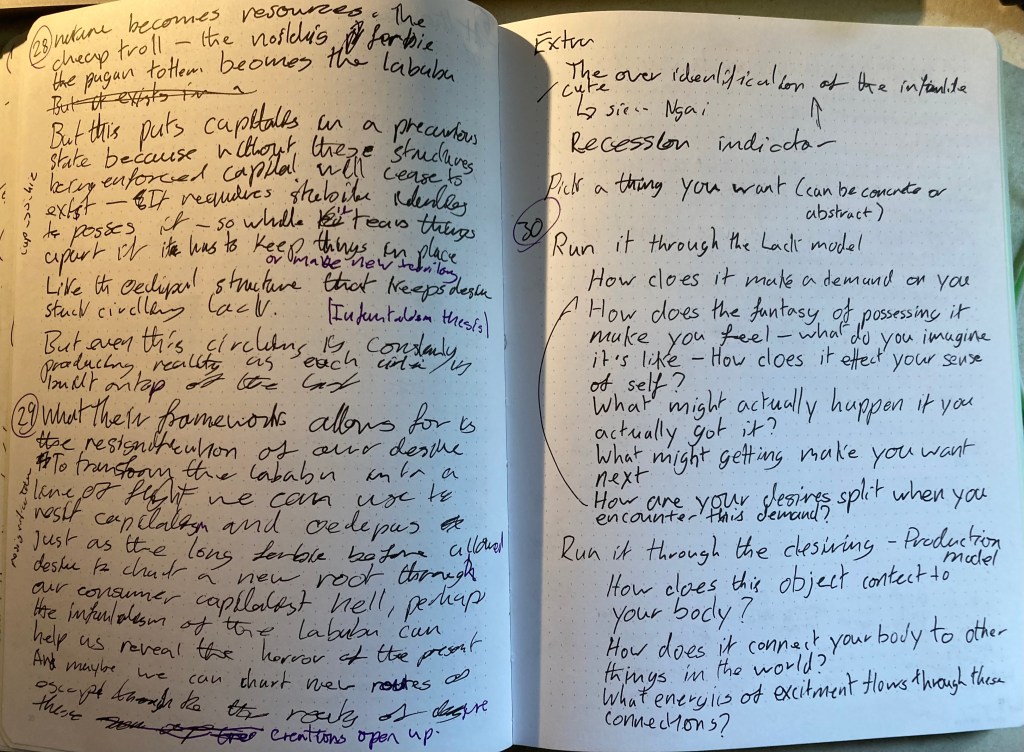 28 nature becomes resources. The
cheap troll – the nostalgia furbie
the pagan tottem becomes the labubu
But it exists in
But this puts capitalism in a precarious
state because without these structures
being enforced capital will cease to
exist – It requires stable identities
to posses it – so while it tears things
apart it has to keep things in place
or make new territory
Like the oedipal structure that keeps desire
stuck circling lack.
(Infantilism thesis)
But even this circling is constantly
producing reality as each is
built ontop of the last
29 What their framework allows for is
the resignation of our desire
To transform the labubu into a
line of flight we can use to
resist capitalism and oedipus
Just as the long furbie before allowed
desire to chart a new root through
our consumer capitalist hell, perhaps
the infantilism of the labubu can
help us reveal the horror of the present
And maybe we can chart new routes of
escape the reality of desire
these creations open up.
Extra
The over identification of the infantile
/ cute
↳ Sie-- Ngai
Recession indicator
Pick a thing you want (can be concrete or
abstract)
30
Run it through the Lack model
How does it make a demand on you
How does the fantasy of possessing it
make you feel – what do you imagine
it's like – How does it effect your sense
of self?
What might actually happen if you
actually got it?
What might getting make you want
next
How are your desires split when you
encounter this demand?
Run it through the desiring – Production
model
How does this object contect to
your body?
How does it connect your body to other
things in the world?
What energies of excitment flows through these
connections?